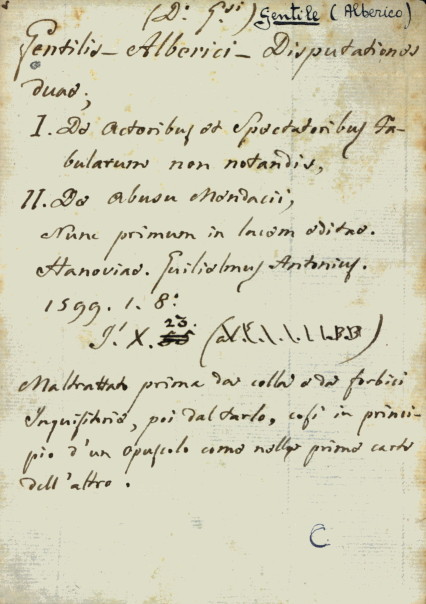 (D: G:si) Gentile (Alberico)
Gentilis Alberici Disputationes
duae;
I. De Actoribus et Spectatoribus Fa-
bularum non notandis,
II. De Abusu Mendacii,
Nunc primum in lucem editae.
Hanoviae. Guilielmus Antonius.
1599. 1. 8:
I! X. 23.
Maltrattato prima da colla e da forbici
Inquisitorie, poi dal tarlo, così in princi-
pio d'un opuscolo come nelle prime carte
dell'altro.
C.